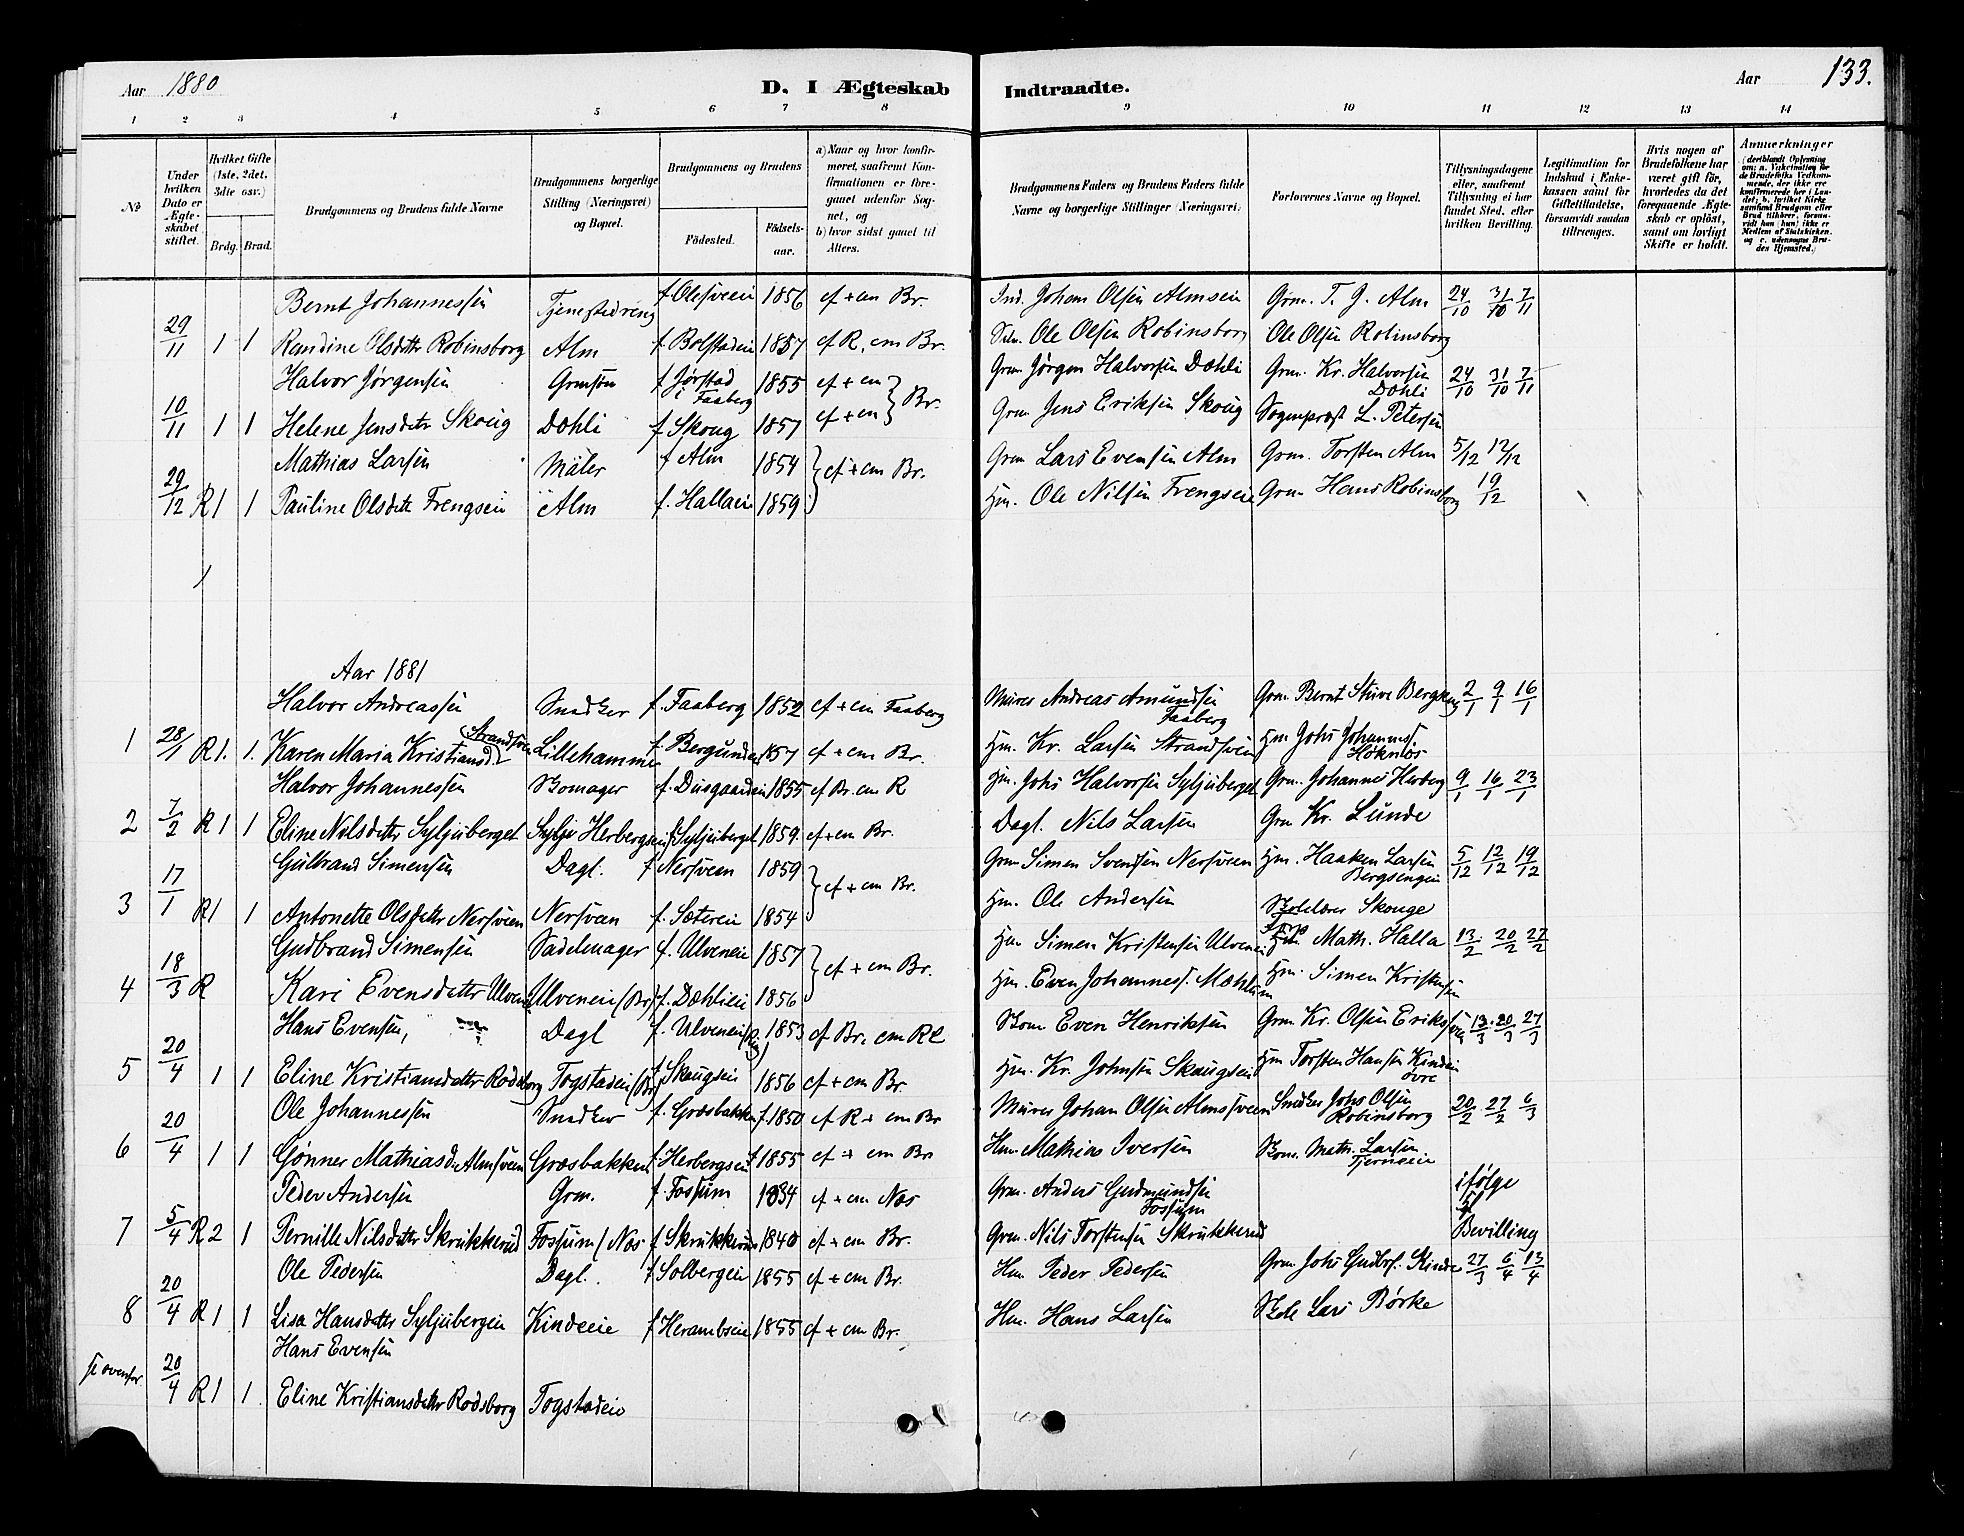 Aar 1880
D. I Ægteskab Indtraadte.
Aar 133.
1 2 3 4 5 6 7 8 9 10 11 12 13 14
№
Under hvilken Dato er Ægteskabet stiftet.
Hvilket Gifte (1ste, 2det, 3die osv.)
Brdg. Brud.
Brudgommens og Brudens fulde Navne
Brudgommens borgerlige Stilling (Næringsvei) og Bopæl.
Brudgommens og Brudens
Födested.
Födselsaar.
a) Naar og hvor konfirmeret, saafremt Konfirmationen er foregaaet udenfor Sognet, og
b) hvor sidst gaaet til Alters.
Brudgommens Faders og Brudens Faders fulde Navne og borgerlige Stillinger (Næringsvei)
Forlovernes Navne og Bopæl.
Tillysningsdagene eller, saafremt Tillysning ei har fundet Sted, efter hvilken Bevilling.
Legitimation for Indskud i Enkekassen samt for Giftetilladelse, forsaavidt saadan tiltrænges.
Hvis nogen af Brudefolkene har været gift för, hvorledes da det foregaaende Ægteskab er oplöst, samt om lovligt Skifte er holdt.
Anmerkninger
Bernt Johannessen Tjenestedreng f. Olesveen 1856 cf + cm Br. Ind. Johans Olsen Almseie Grm. T. J. Alm 24/10 31/10 7/11
29/11 1 1 Randine Olsdatter Robinsborg Alm f. Bolstadeie 1857 cf R. cm Br. Ole Olsen Robinsborg Ole Olsen Robinsborg
Halvor Jørgensen Grmsøn f. Jørstad i Faaberg 1855 cf + cm Grm Jørgen Halvorsen Døhli Grm. Kr. Halvorsen Døhli 24/10 31/10 7/11
10/11 1 1 Helene Jensdatter Skoug Døhli f Skoug 1857 cf + cm Br. Grm Jens Eriksen Skoug Sogneprest L. Petersen
Mathias Larsen Maler f Alm 1854 cf + cm Br. Grm Lars Evensen Alm Grm. Torsten Alm 5/12 12/12
29/12 R 1 1 Pauline Olsdatter Frengseie Alm f. Hallaeie 1859 Hm. Ole Nilsen Frengseie Grm Hans Robinsborg 19/12
Aar 1881
Halvor Andreassen Snedker f. Faaberg 1852 cf + cm Faaberg Murer Andreas Amundsen Faaberg Grm Bernt Stuve Bergeng 2/1 9/1 16/1
1 28/1 R 1. 1. Karen Maria Kristiansd. Strandsveen Lillehammer f. Bergunder 1857 cf + cm Br. Hm. Kr. Larsen Strandsveen Hm Johs Johannes. Høknæs
Halvor Johannessen Skomager f. Diisgaardeie 1855 cf Br. cm R Hm. Johs Halvorsen Syljuberget Grm. Johannes Herberg 9/1 16/1 23/1
2 7/2 R 1 1 Eline Nilsdatter Syljuberget Sylju Herbergseie f Syljuberget 1859. cf + cm Br. Dagl. Nils Larsen Grm Kr. Lunde
Gulbrand Simensen Dagl. f Nersveen 1859 cf + cm Br. Grm Simen Svendsen Nersveen Hm. Haaken Larsen Bergsengen 5/12 12/12 19/12
3 17/1 R 1 1 Antonette Olsdatter Nersveen Nersveen f. Sætereie 1854 Hm. Ole Andersen Skolelærer Skouge
Gudbrand Simensen Sadelmager f. Ulveneie 1857 cf + cm Br. Hm Simen Kristensen Ulveneie Math. Halla 13/2 20/2 27/2
4 18/3 R Kari Evensdatter Ulven Ulveneie (Br) f. Døhlieie 1856 Hm. Even Johannes. Mæhlum Hm. Simen Kristensen
Hans Evensen, Dagl f. Ulveneie (Ring) 1853 cf Br. cm R Skom Even Henriksen Grm Kr. Olsen Erikssveen 13/3 20/3 27/3
5 20/4 1 1 Eline Kristiansdatter Rodsborg Togstadeie (Br) f Skaugseie 1856 cf + cm Br. Hm. Kr. Johnsen Skaugseie Hm Torsten Hansen Kindeie övre
Ole Johannessen Snedker f. Græsbakken f. 1850 cf R + cm Br Murer Johan Olsen Almssveen Snedker Johs Olsen Robinsborg 20/2 27/2 6/3
6 20/4 1 1 Gønner Mathiasd. Almssveen Græsbakken f. Herbergseie 1855 cf + cm Br Hm Mathias Iversen Skom. Math. Larsen Tjerneeie
Peder Andersen Grm. f Fossum 1834 cf + cm Næs Grm. Anders Gudmundsen Fossum ifølge
7 5/4 R 2 1 Pernille Nilsdatter Skrukkerud Fossum (Næs f Skrukkerud 1840 cf + cm Br. Grm. Nils Torstensen Skrukkerud Bevilling
Ole Pedersen Dagl. f Solbergeie 1855 cf + cm Br. Hm Peder Pedersen Grm Johs Gudbr. Kinde 27/3 6/4 13/4
8 20/4 R 1 1 Lisa Hansdatter Syljubergeie Kindeeie f Herambseie 1855 cf + cm Br. Hm. Hans Larsen Skole Lars Børke
Hans Evensen
se ovenfor 20/4 R 1 1 Eline Kristiansdatter Rodsborg Togstadeie